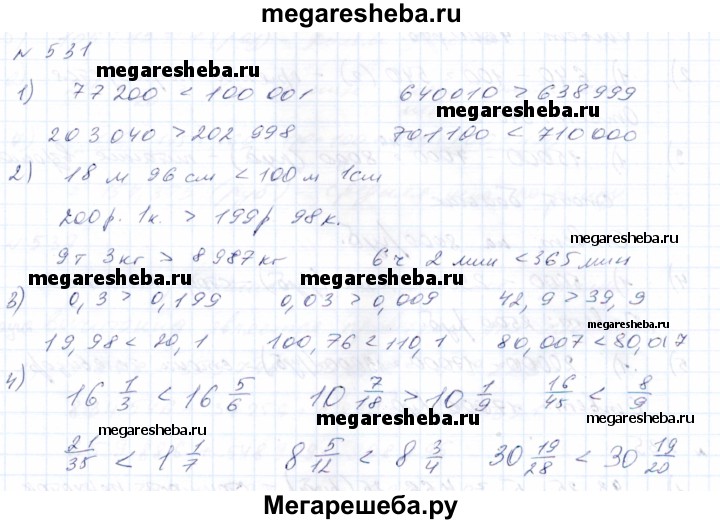 megaresheba.ru
№ 531
megaresheba.ru
1) 77 200 < 100 001 640010 > 638 999
megaresheba.ru
203 040 > 202 998 701 100 < 710 000
2) 18 м 96 см < 100 м 1 см
200 р. 1 к. > 199 р 98 к.
megaresheba.ru
9 т 3 кг > 8 987 кг 6 ч 2 мин < 365 мин
megaresheba.ru megaresheba.ru
3) 0,3 > 0,199 0,03 > 0,009 42,9 > 39,9
megaresheba.ru
19,98 < 20,1 100,76 < 110,1 80,007 < 80,017
4) 16 1/3 < 16 5/6 10 7/18 > 10 1/9 16/45 < 8/9
megaresheba.ru megaresheba.ru megaresheba.ru
21/35 < 1 1/7 8 5/12 < 8 3/4 30 19/28 < 30 19/20
Мегарешеба.ру